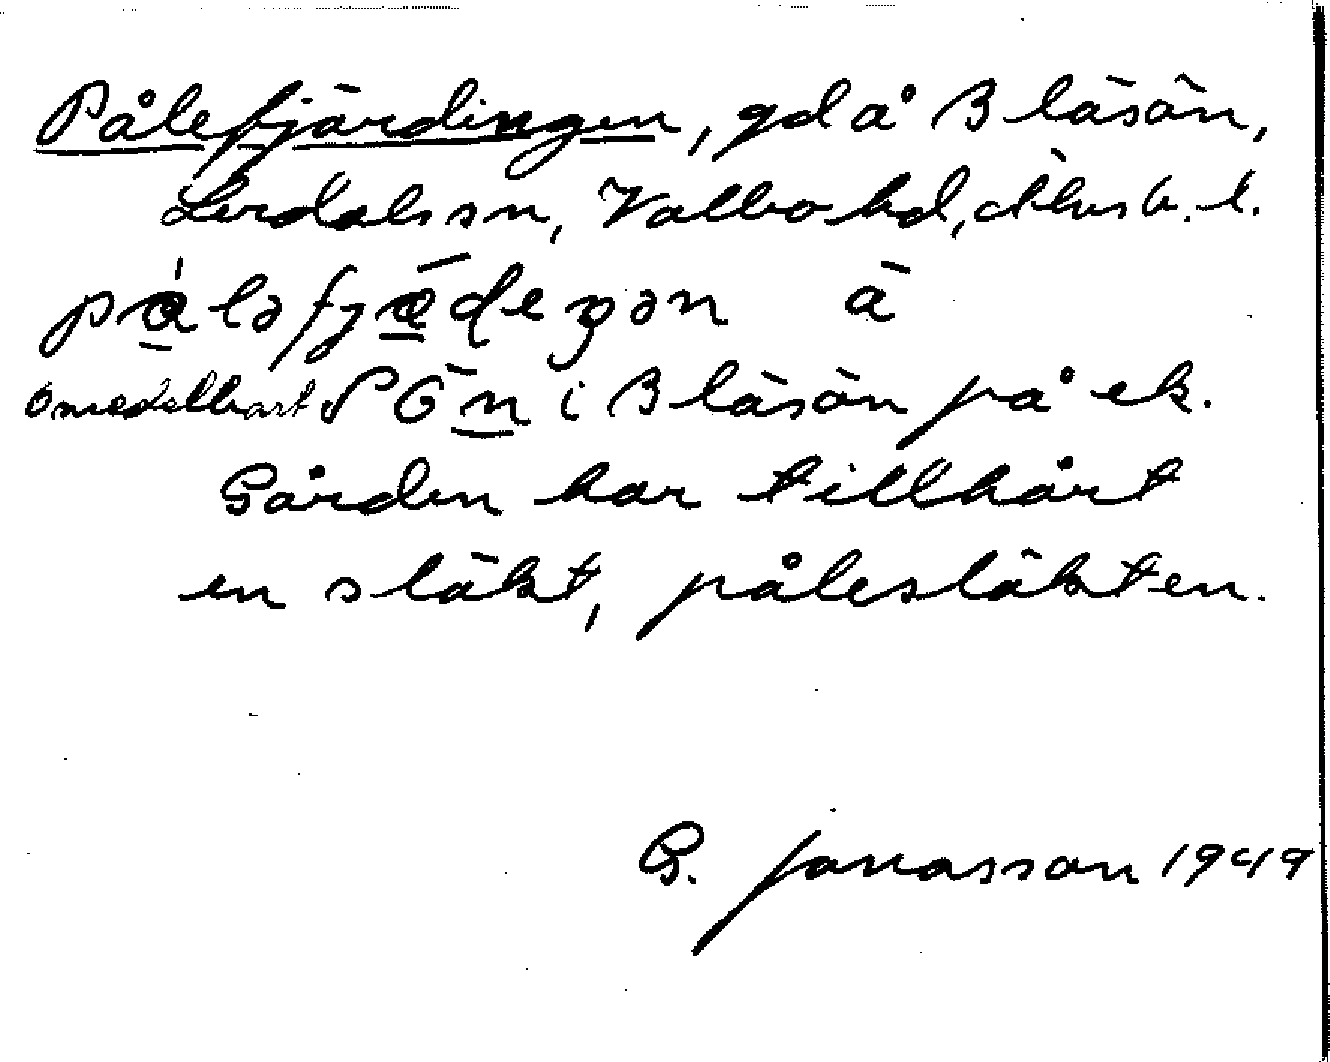 Pålefjärdingen, gd å Bläsän,
Lerdals sn, Valbo hd, Älvsb. l.
på̀ləfjæ̅deŋən ä
Omedelbart SÖ n i Bläsän på ek.
Gården har tillhört
en släkt, pålesläkten.
G. Jonasson 1949